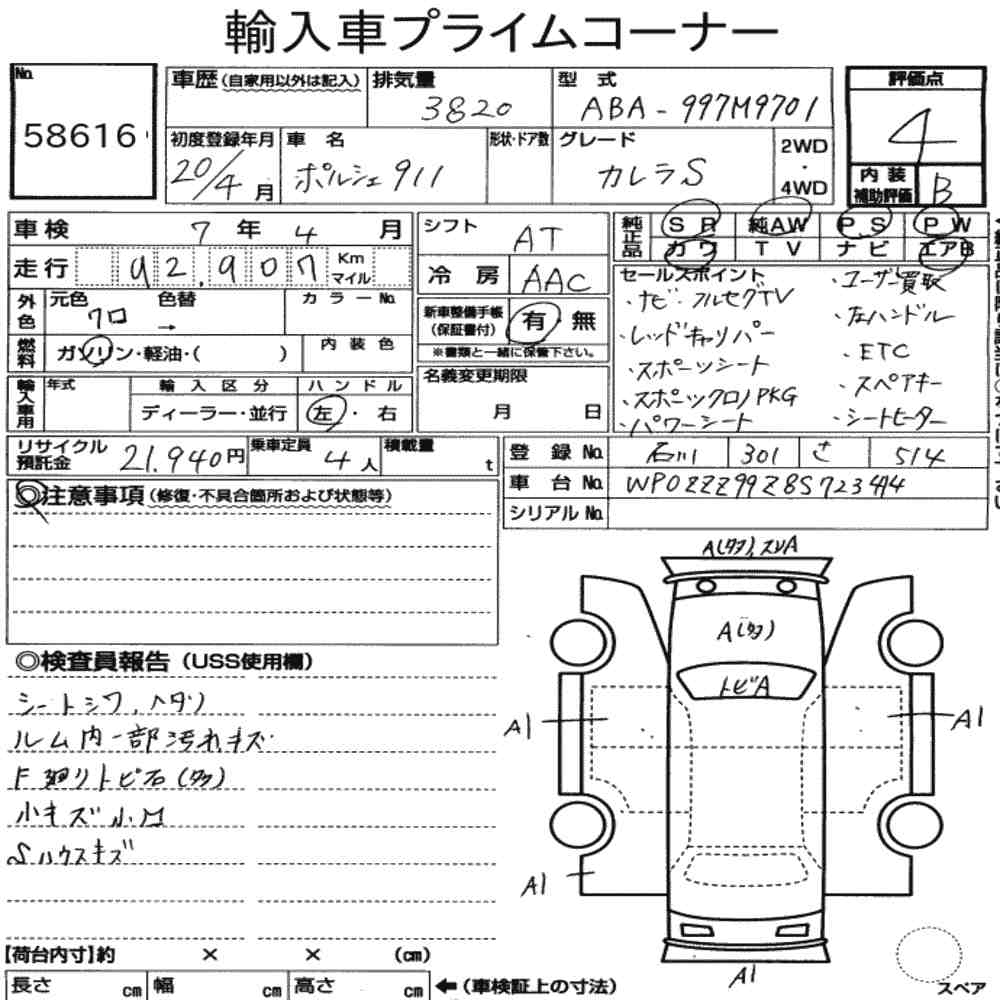 輸入車プライムコーナー
No. 58616
車歴 (自家用以外は記入)
排気量 3820
型式 ABA-997M9701
評価点 4
初度登録年月 20/4月
車名 ポルシェ911
形状・ドア数
グレード カレラS
2WD・4WD
内装補助評価 B
車検 7年4月
シフト AT
純正品 SR 純AW P.S P.W
カワ TV ナビ エアB
走行 92,907 Km マイル
冷房 AAC
外色 元色 クロ 色替 → カラーNo.
新車整備手帳(保証書付) 有・無
※書類と一緒に保管下さい。
燃料 ガソリン・軽油・( ) 内装色
名義変更期限 月 日
輸入車用 年式 輸入区分 ディーラー・並行 ハンドル 左・右
セールスポイント
・ナビ・フルセグTV
・レッドキャリパー
・スポーツシート
・スポーツクロノPKG
・パワーシート
・ユーザー買取
・左ハンドル
・ETC
・スペアキー
・シートヒーター
リサイクル預託金 21.940円
乗車定員 4人
積載量 t
登録No. 石川 301 さ 514
車台No. WP0ZZZ99Z8S723414
シリアルNo.
◎注意事項 (修復・不具合箇所および状態等)
◎検査員報告 (USS使用欄)
シートシワ、ヘタリ
ルーム内一部汚れキズ
F廻りトビ石(多)
小キズ小凹
Sハウスキズ
A(多),スレA
A(多)
トビA
A1
A1
A1
A1
【荷台内寸】約 × × (cm)
長さ cm 幅 cm 高さ cm ←(車検証上の寸法)
スペア